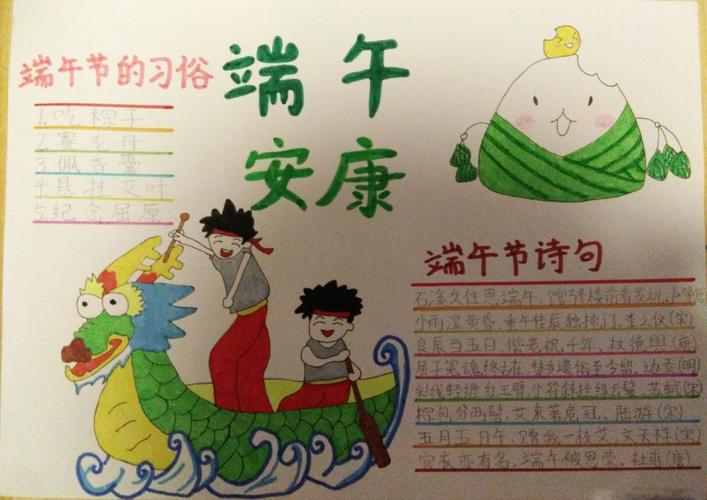 端午节的习俗
1.吃粽子
2.赛龙舟
3.佩香囊
4.悬挂艾叶
5.纪念屈原
端午
安康
端午节诗句
石溪久住思端午,馆驿楼前看发机,
小雨湿黄昏,重午佳辰独掩门,李之仪(宋)
良辰当五日,偕老祝千年,权德舆(唐)
屈子冤魂终古在,楚乡遗俗至今留,边贡(明)
彩线轻缠红玉臂,小符斜挂绿云鬟,苏轼(宋)
粽包分两髻,艾束着危冠,陆游(宋)
五月五日午,赠我一枝艾,文天祥(宋)
宫衣亦有名,端午被恩荣,杜甫(唐)